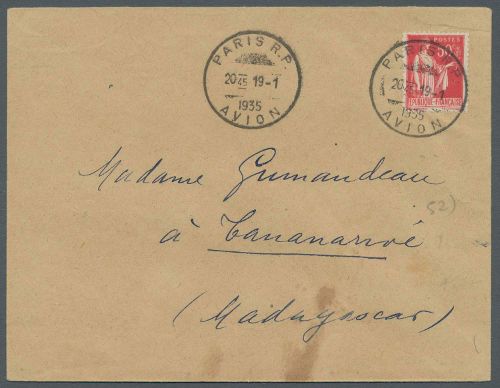 PARIS R.P.
20 45 19-1
1935
AVION
POSTES
PARIS R.P.
20 45 19-1
1935
AVION
RÉPUBLIQUE FRANÇAISE
Madame Gumandeau
à Tananarivé
(Madagascar)
52)